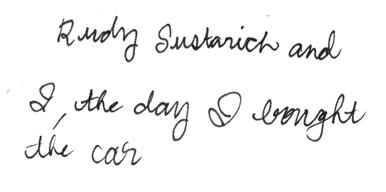 Rudy Sustarich and
I, the day I bought
the car